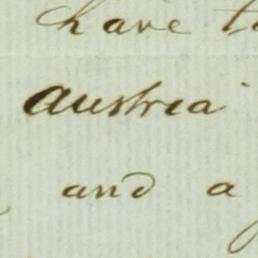 have
Austria
and a